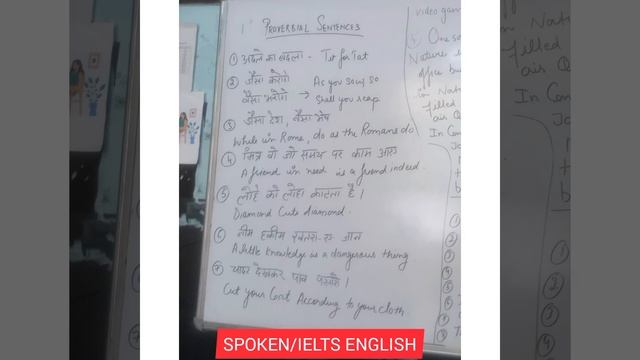 PROVERBIAL SENTENCES
① अदले का बदला - Tit for Tat
② जैसा करोगे As you sow, so
वैसा भरोगे → Shall you reap
③ जैसा देश, वैसा भेष
While in Rome, do as the Romans do
④ मित्र वो जो समय पर काम आए
A friend in need is a friend indeed.
⑤ लोहे को लोहा काटता है।
Diamond Cuts diamond.
⑥ नीम हकीम खतरा-ए-जान
A little knowledge is a dangerous thing
⑦ चादर देखकर पांव पसारो।
Cut your Coat According to your cloth
video gam
One so
Nature
office bu
in Natu
filled
air Q
In Con
①
②
③
④
SPOKEN/IELTS ENGLISH